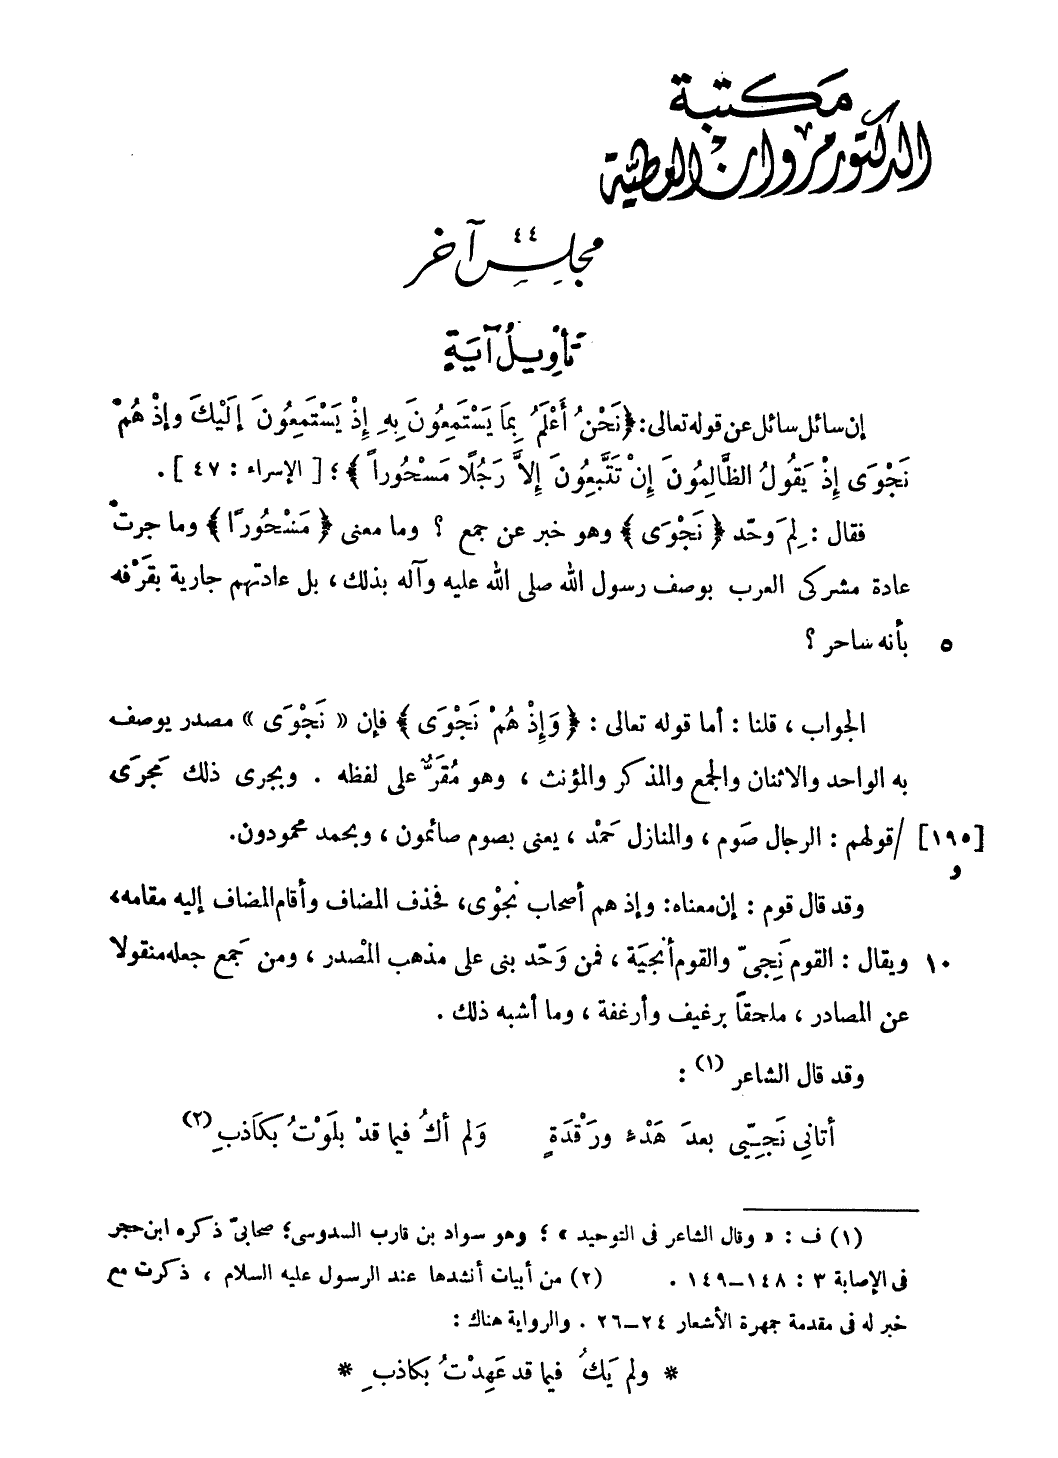 مكتبة
الدكتور مروان العطية
٤٤
مجلس آخر
تأويل آية
إن سائل سائل عن قوله تعالى: ﴿نَحْنُ أَعْلَمُ بِمَا يَسْتَمِعُونَ بِهِ إِذْ يَسْتَمِعُونَ إِلَيْكَ وإذْ هُمْ
نَجْوَى إِذْ يَقُولُ الظَّالِمُونَ إِنْ تَتَّبِعُونَ إِلاَّ رَجُلًا مَسْحُوراً﴾؛ [ الإسراء : ٤٧ ] .
فقال : لِمَ وحّد ﴿ نَجْوَى ﴾ وهو خبر عن جمع ؟ وما معنى ﴿ مَسْحُورًا ﴾ وما جرتْ
عادة مشركى العرب بوصف رسول الله صلى الله عليه وآله بذلك، بل عادتهم جارية بقَرْفه
٥ بأنه ساحر ؟
الجواب ، قلنا : أما قوله تعالى : ﴿ وَإِذْ هُمْ نَجْوَى ﴾ فإن « نَجْوَى » مصدر يوصف
به الواحد والاثنان والجمع والمذكر والمؤنث ، وهو مُقَرٌّ على لفظه . ويجرى ذلك مَجرَى
[١٩٥] /قولهم : الرجال صَوم ، والمنازل حَمْد ، يعنى بصوم صائمون ، وبحمد محمودون.
و
وقد قال قوم : إن معناه: وإذ هم أصحاب نجْوى، فحذف المضاف وأقام المضاف إليه مقامه،
١٠ ويقال : القوم نَجِىّ والقوم أنجيَة ، فمن وَحّد بنى على مذهب المْصدر ، ومن جَمع جعله منقولا
عن المصادر ، ملحقاً برغيف وأرغفة ، وما أشبه ذلك .
وقد قال الشاعر (١) :
أتانِي نَجِيّي بعدَ هَدْء ورَقْدَةٍ وَلم أكُ فيما قدْ بلَوْتُ بكَاذبِ (٢)
(١) ف : « وقال الشاعر فى التوحيد » ؛ وهو سواد بن قارب السدوسى؛ صحابىّ ذكره ابن حجر
فى الإصابة ٣ : ١٤٨–١٤٩ . (٢) من أبيات أنشدها عند الرسول عليه السلام ، ذكرت مع
خبر له فى مقدمة جمهرة الأشعار ٢٤–٢٦ . والرواية هناك :
* ولم يَكُ فيما قد عَهِدْتُ بكاذبِ *